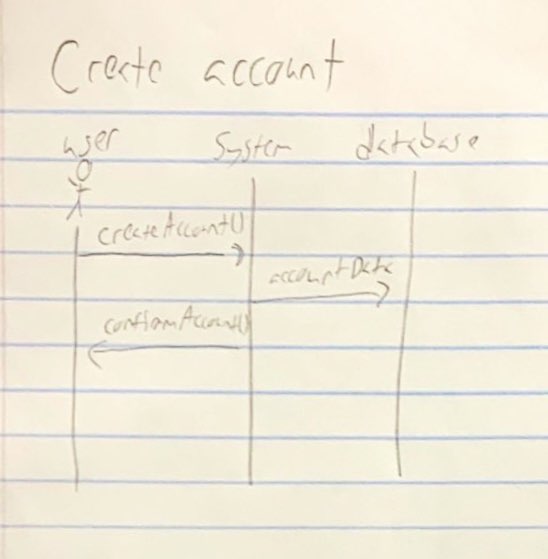 Create account
user System database
createAccount()
accountData
confirmAccount()